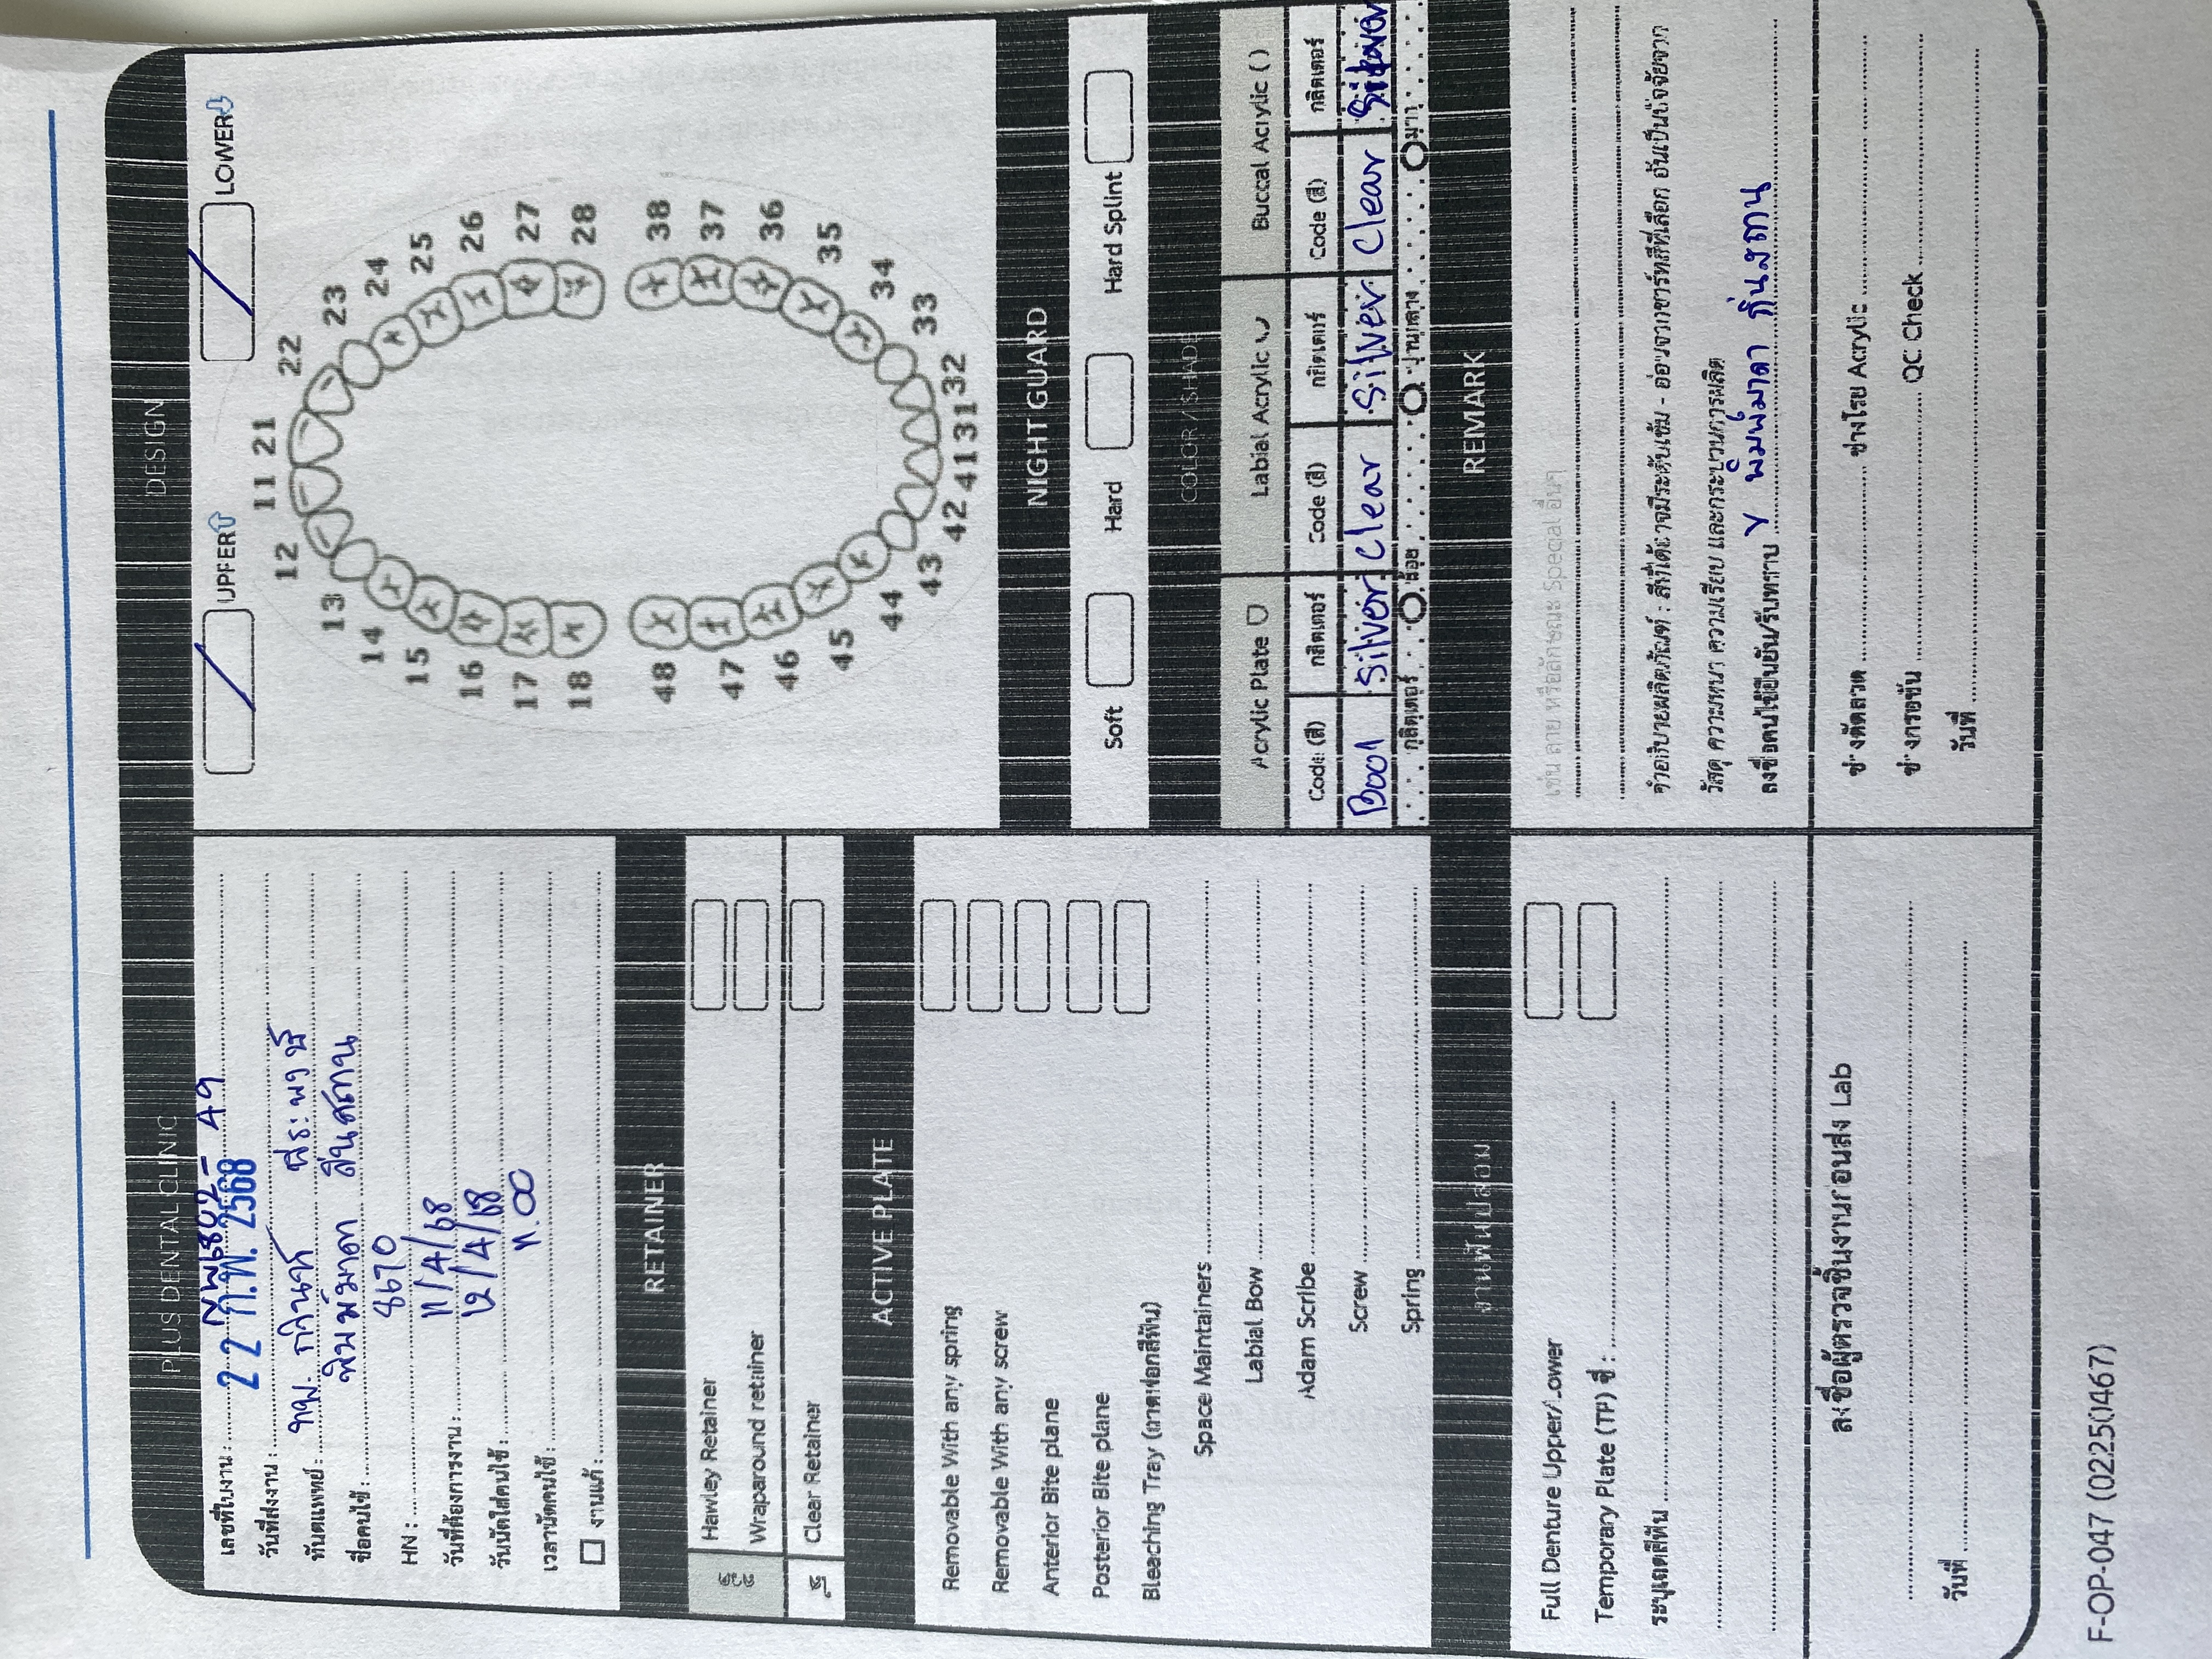 PLUS DENTAL CLINIC
เลขที่ใบงาน : 6802- 49
วันที่ส่งงาน : 22 ก.พ. 2568
ทันตแพทย์ : ทพ. กวินท์ พีระพงษ์
ชื่อคนไข้ : พิมพ์มาดา ถิ่นสถาน
HN : 8670
วันที่ต้องการงาน : 11/4/68
วันนัดใส่คนไข้ : 12/4/68
เวลานัดคนไข้ : 11.00
งานแก้ :
RETAINER
ลวด
Hawley Retainer
Wraparound retainer
ใส
Clear Retainer
ACTIVE PLATE
Removable With any spring
Removable With any screw
Anterior Bite plane
Posterior Bite plane
Bleaching Tray (ถาดฟอกสีฟัน)
Space Maintainers
Labial Bow
Adam Scribe
Screw
Spring
งานฟันปลอม
Full Denture Upper/Lower
Temporary Plate (TP) ซี่ :
ระบุเฉดสีฟัน
ลงชื่อผู้ตรวจชิ้นงานก่อนส่ง Lab
วันที่
DESIGN
/ UPPER / LOWER
11 21
12 22
13 23
14 24
15 25
16 26
17 27
18 28
48 38
47 37
46 36
45 35
44 34
43 33
42 41 31 32
NIGHT GUARD
Soft Hard Hard Splint
COLOR / SHADE
Acrylic Plate Labial Acrylic Buccal Acrylic ( )
Code (สี) กลิตเตอร์ Code (สี) กลิตเตอร์ Code (สี) กลิตเตอร์
B001 Silver Clear Silver Clear Silver
กลิตเตอร์ น้อย ปานกลาง มาก
REMARK
เช่น ลาย หรือลักษณะ Special อื่นๆ
คำอธิบายผลิตภัณฑ์ : สีที่ได้อาจมีระดับเข้ม - อ่อนจากชาร์ทสีที่เลือก อันเป็นปัจจัยจาก
วัสดุ ความหนา ความเรียบ และกระบวนการผลิต
ลงชื่อคนไข้ยืนยัน/รับทราบ พิมพ์มาดา ถิ่นสถาน
ช่างดัดลวด ช่างโรย Acrylic
ช่างกรอขัน QC Check
วันที่
F-OP-047 (02250467)